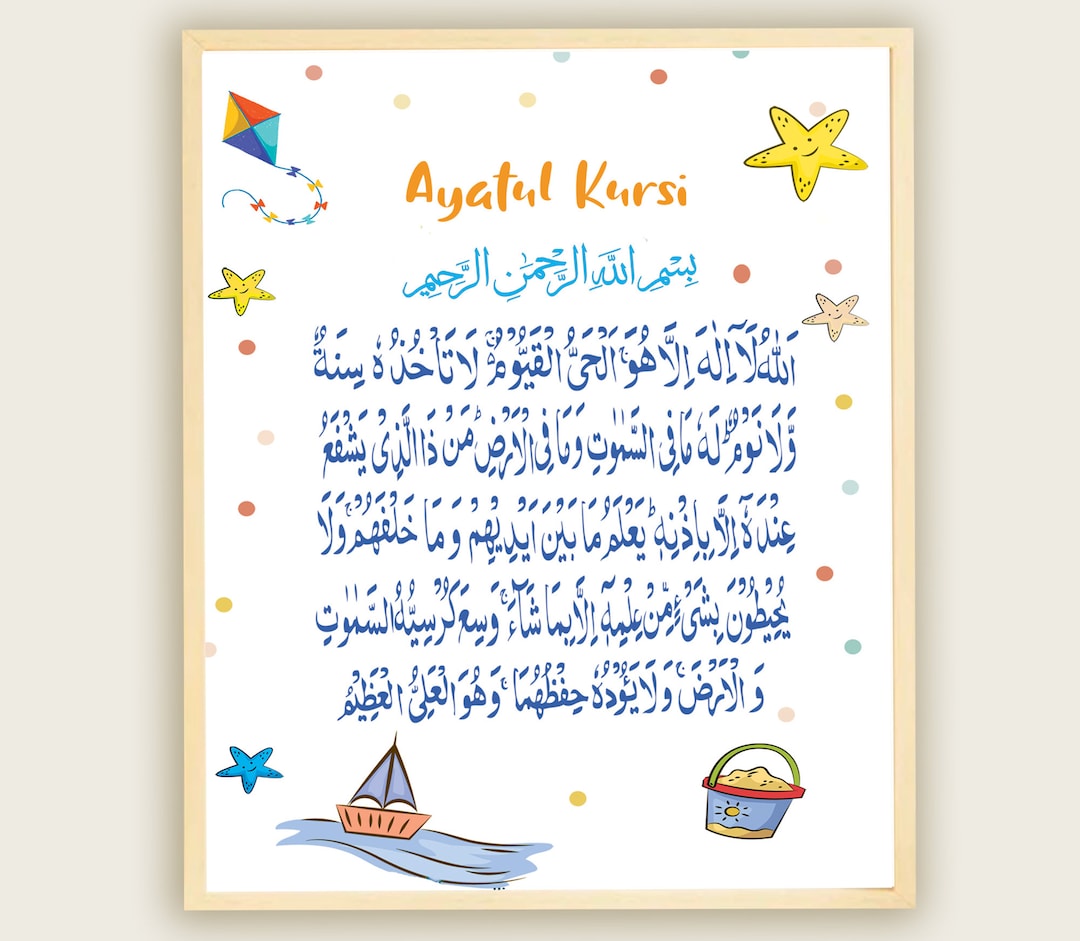 Ayatul Kursi
بِسْمِ اللَّهِ الرَّحْمَٰنِ الرَّحِيمِ
اَللّٰهُ لَآ اِلٰهَ اِلَّا هُوَ ۚ اَلْحَىُّ الْقَيُّوْمُ ۚ لَا تَاْخُذُهٗ سِنَةٌ
وَّلَا نَوْمٌ ؕ لَهٗ مَا فِى السَّمٰوٰتِ وَمَا فِى الْاَرْضِ ؕ مَنْ ذَا الَّذِىْ يَشْفَعُ
عِنْدَهٗۤ اِلَّا بِاِذْنِهٖ ؕ يَعْلَمُ مَا بَيْنَ اَيْدِيْهِمْ وَمَا خَلْفَهُمْ ۚ وَلَا
يُحِيْطُوْنَ بِشَىْءٍ مِّنْ عِلْمِهٖۤ اِلَّا بِمَا شَآءَ ۚ وَسِعَ كُرْسِيُّهُ السَّمٰوٰتِ
وَالْاَرْضَ ۚ وَلَا يَئُوْدُهٗ حِفْظُهُمَا ۚ وَهُوَ الْعَلِىُّ الْعَظِيْمُ